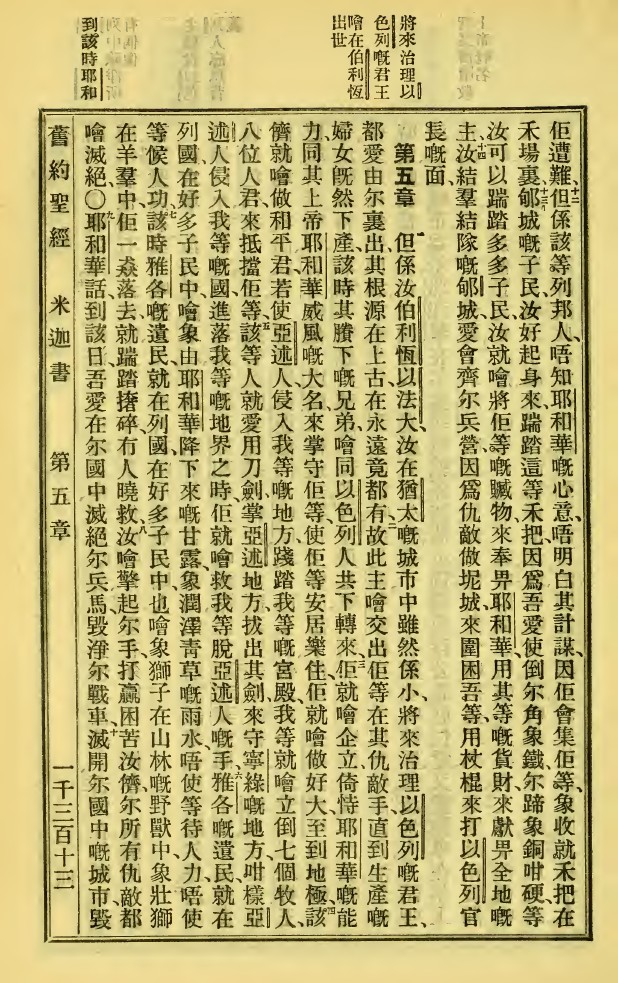 將來治理以
色列嘅君王
噲在伯利恆
出世
到該時耶和
佢遭難、十二但係該等列邦人、唔知耶和華嘅心意、唔明白其計謀、因佢會集佢等、象收就禾把在
禾場裏、十三郇城嘅子民、汝好起身來踹踏這等禾把、因爲吾愛使倒尔角象鐵、尔蹄象銅咁硬、等
汝可以踹踏多多子民、汝就噲將佢等嘅贓物、來奉畀耶和華、用其等嘅貨財、來獻畀全地嘅
主、十四汝結羣結隊嘅郇城、愛會齊尔兵營、因爲仇敵做坭城、來圍困吾等、用杖棍來打以色列官
長嘅面、
第五章 一但係汝伯利恆以法大、汝在猶太嘅城市中雖然係小、將來治理以色列嘅君王、
都愛由尔裏出、其根源在上古、在永遠竟都有、二故此主噲交出佢等在其仇敵手、直到生產嘅
婦女旣然下產、該時其賸下嘅兄弟、噲同以色列人共下轉來、三佢就噲企立倚恃耶和華嘅能
力、同其上帝耶和華威風嘅大名、來掌守佢等、使佢等安居樂住、佢就噲做好大、至到地極、四該
儕就噲做和平君、若使亞述人侵入我等嘅地方、踐踏我等嘅宮殿、我等就噲立倒七個牧人、
八位人君、來抵擋佢等、五該等人就愛用刀劍掌亞述地方、拔出其劍來守寧綠嘅地方、咁樣亞
述人侵入我等嘅國、進落我等嘅地界之時、佢就噲救我等脫亞述人嘅手、六雅各嘅遺民、就在
列國在好多子民中、噲象由耶和華降下來嘅甘露、象潤澤青草嘅雨水、唔使等待人力、唔使
等候人功、七該時雅各嘅遺民、就在列國、在好多子民中、也噲象獅子在山林嘅野獸中、象壯獅
在羊羣中、佢一猋落去、就踹踏碎、有人曉救、八汝噲擎起尔手、打贏困苦汝儕、尔所有仇敵都
噲滅絕、〇九耶和華話、到該日吾愛在尔國中滅絕尔兵馬、毀淨尔戰車、十滅開尔國中嘅城市、毀
舊約聖經 米迦書 第五章 一千三百十三